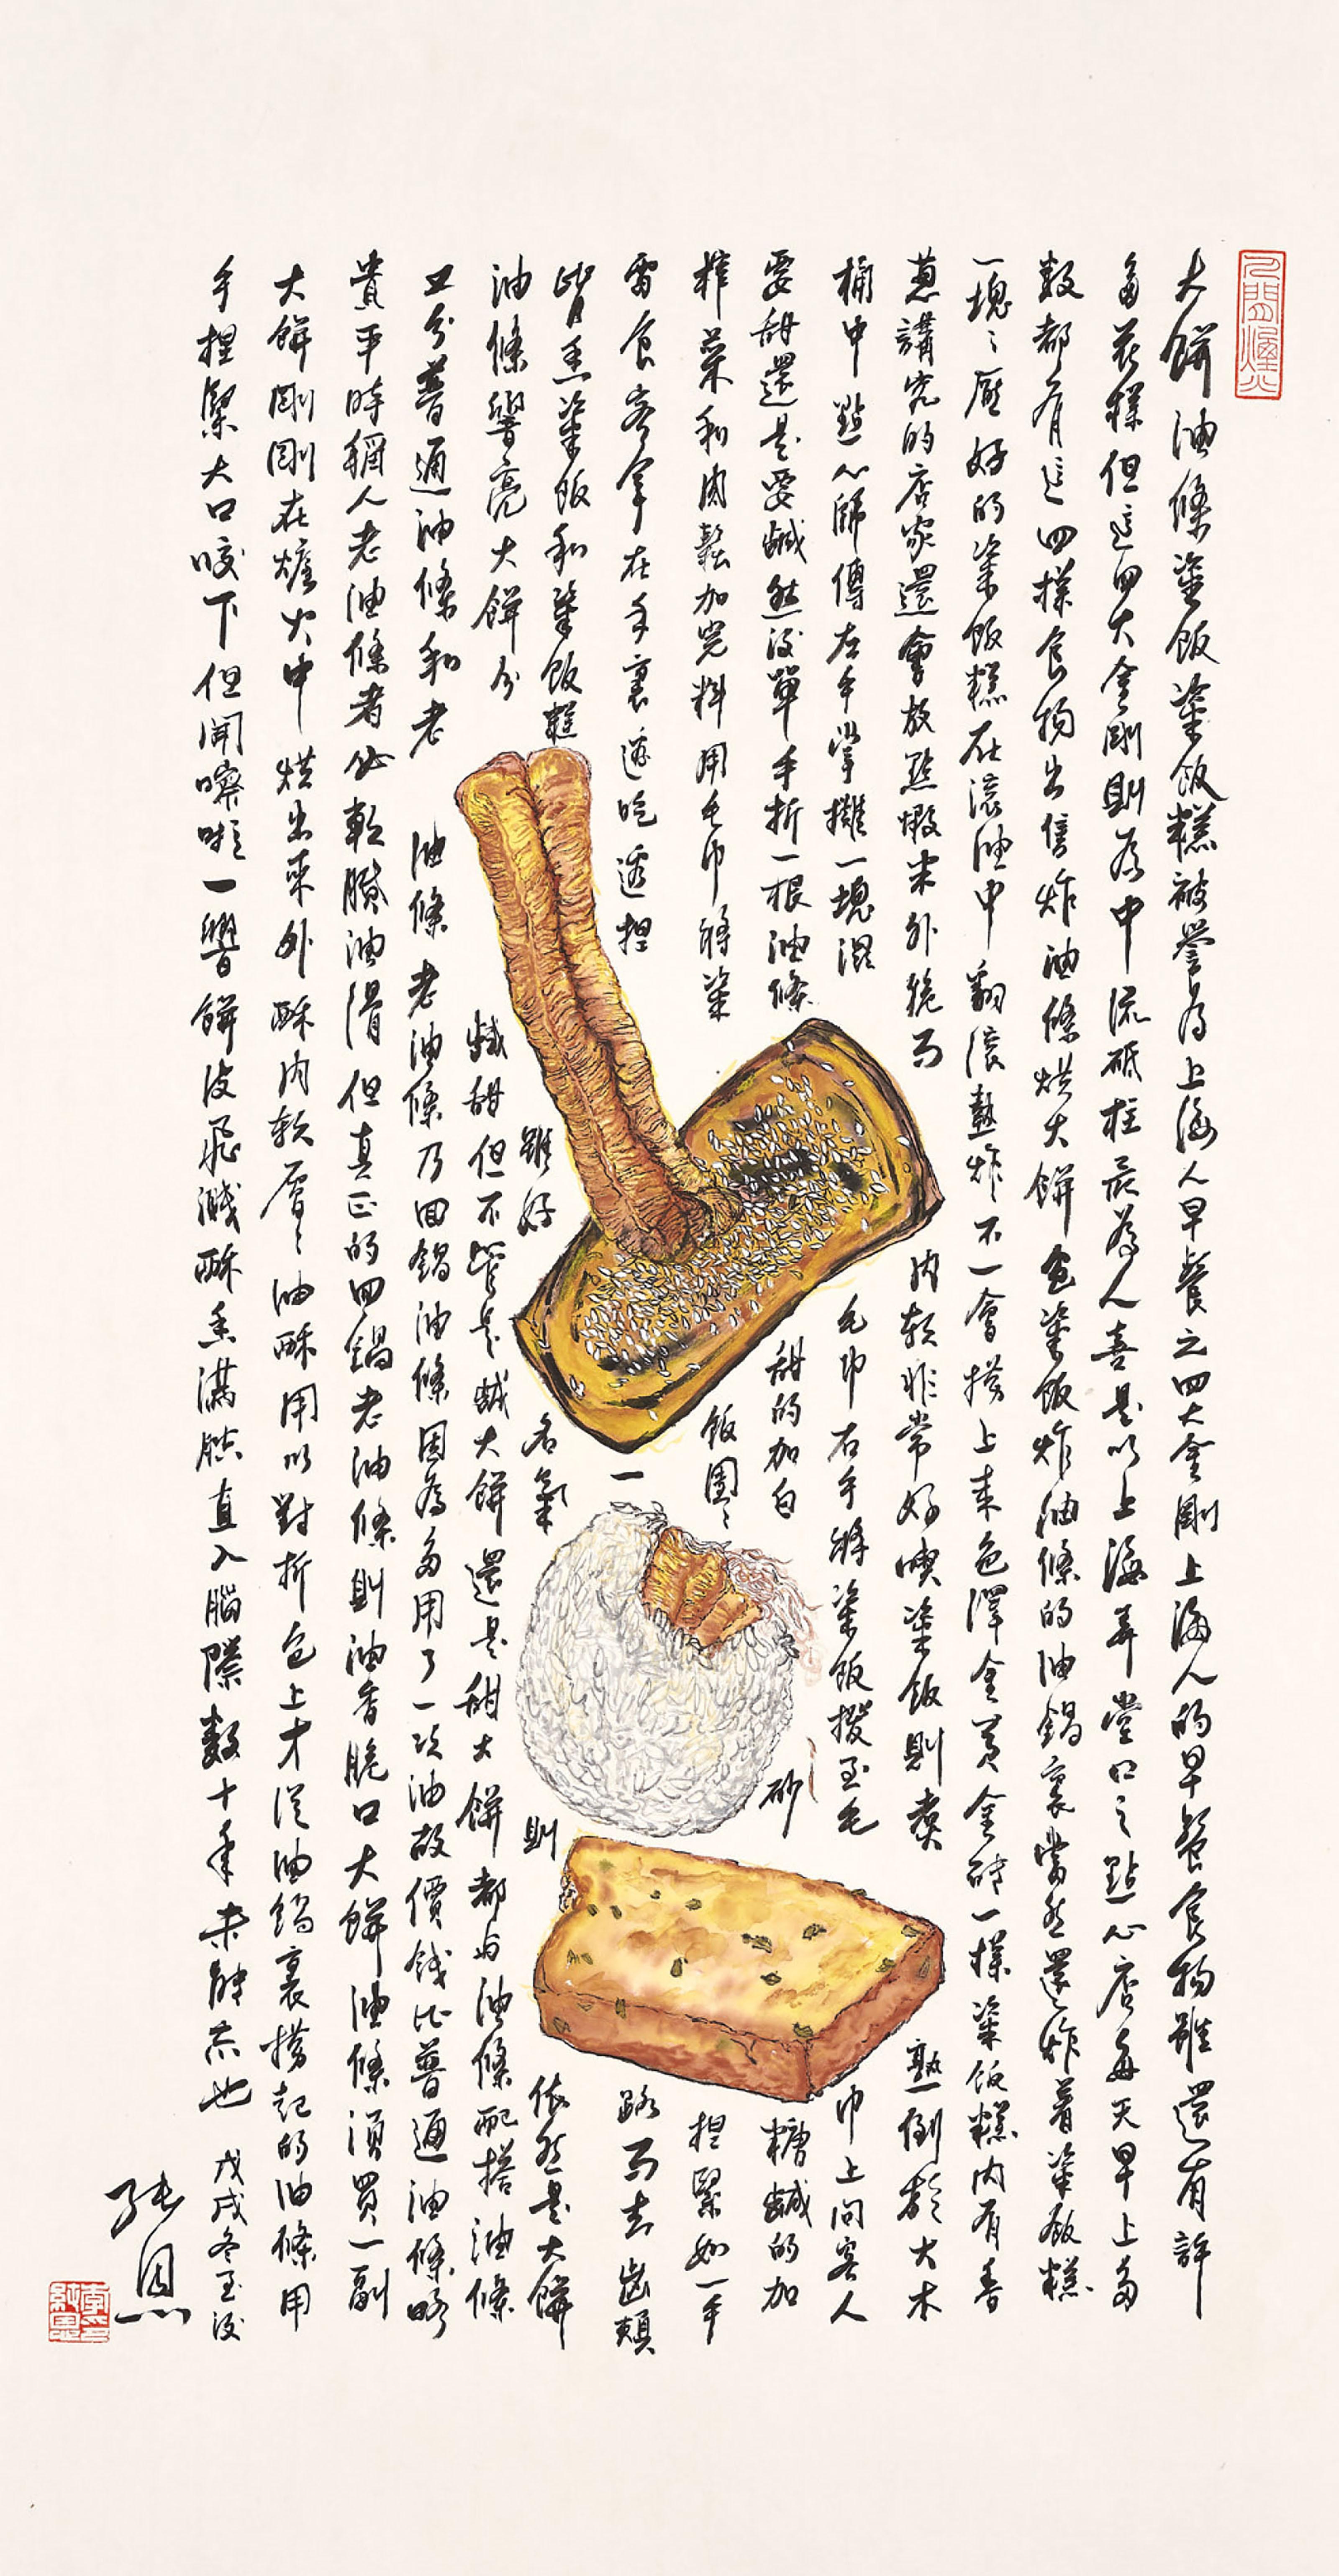 大餅油條粢飯粢飯糕被譽為上海人早餐之四大金剛上海人的早餐食物雖還有許
多花樣但這四大金剛則為中流砥柱最為人喜是以上海弄堂口之點心店每天早上多
數都有這四樣食物出售炸油條烘大餅包粢飯炸油條的油鍋裏當然還炸著粢飯糕
一塊々壓好的粢飯糕在滾油中翻滾熱炸不一會撈上來色澤金黃金磚一樣粢飯糕內有香
蔥講究的店家還會放點蝦米外脆而內軟非常好喫粢飯則煮熟倒於大木
桶中點心師傅左手掌攤一塊濕毛巾右手將粢飯撥至毛巾上問客人
要甜還是要鹹然後單手折一根油條甜的加白砂糖鹹的加
榨菜和肉鬆加完料用毛巾將粢飯團々捏緊如一手
雷食客拿在手裏邊吃邊捏一路而去齒頰
皆香粢飯和粢飯糕雖好名氣則依然是大餅
油條響亮大餅分鹹甜但不管是鹹大餅還是甜大餅都与油條配搭油條
又分普通油條和老油條老油條乃回鍋油條因為多用了一次油故價錢比普通油條略
貴平時稱人老油條者必軟膩油滑但真正的回鍋老油條則油香脆口大餅油條須買一副
大餅剛剛在爐火中烘出來外酥內軟層々油酥用以對折包上才從油鍋裏撈起的油條用
手捏緊大口咬下但聞嚓啦一響餅皮飛濺酥香滿腔直入腦際數十年未能忘也
戊戌冬至後
純恩